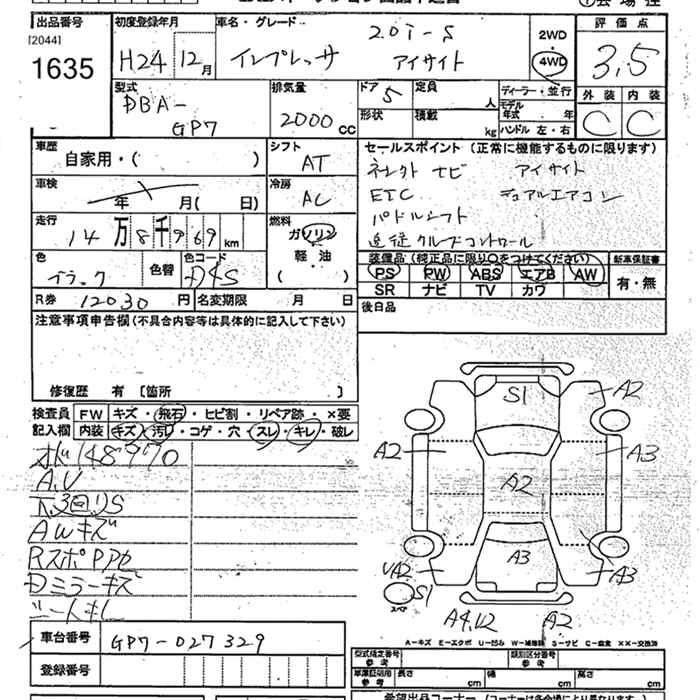 出品番号 初度登録年月 車名・グレード 評価点
[2044]
1635
H24 12月 インプレッサ 2.0i-S アイサイト
2WD
4WD
3.5
外装 内装
C C
型式 排気量 ドア 定員 ディーラー・並行
DBA-
GP7
2000cc
5
人
形状 積載 kg
モデル年式 年
ハンドル 左・右
車歴
自家用・( )
シフト
AT
車検
年 月( 日)
冷房
AC
走行
14万8千969km
燃料
ガソリン
軽油
( )
色
ブラック
色替
色コード
D4S
R券 12030円 名変期限 月 日
セールスポイント (正常に機能するものに限ります)
コネクトナビ アイサイト
ETC デュアルエアコン
パドルシフト
追従クルーズコントロール
装備品(純正品に限り○をつけてください) 新車保証書
PS PW ABS エアB AW
SR ナビ TV カワ
有・無
後日品
注意事項申告欄(不具合内容等は具体的に記入して下さい)
修復歴 有 [箇所 ]
検査員記入欄
FW キズ・飛石・ヒビ割・リペア跡・×要
内装 キズ・汚レ・コゲ・穴・スレ・キレ・破レ
148970
A.V
下回りS
AWキズ
Dミラーキズ
S1
A2
A2
A3
A2
A3
A2
A3
S1
スペア
A2
A-キズ E-エクボ U-凹み W-補修跡 S-サビ C-腐食 XX-交換済
車台番号 GP7-027329
登録番号
型式指定番号 参考
類別区分番号 参考
車庫証明用 参考
長さ cm 幅 cm 高さ cm
希望出品コーナー